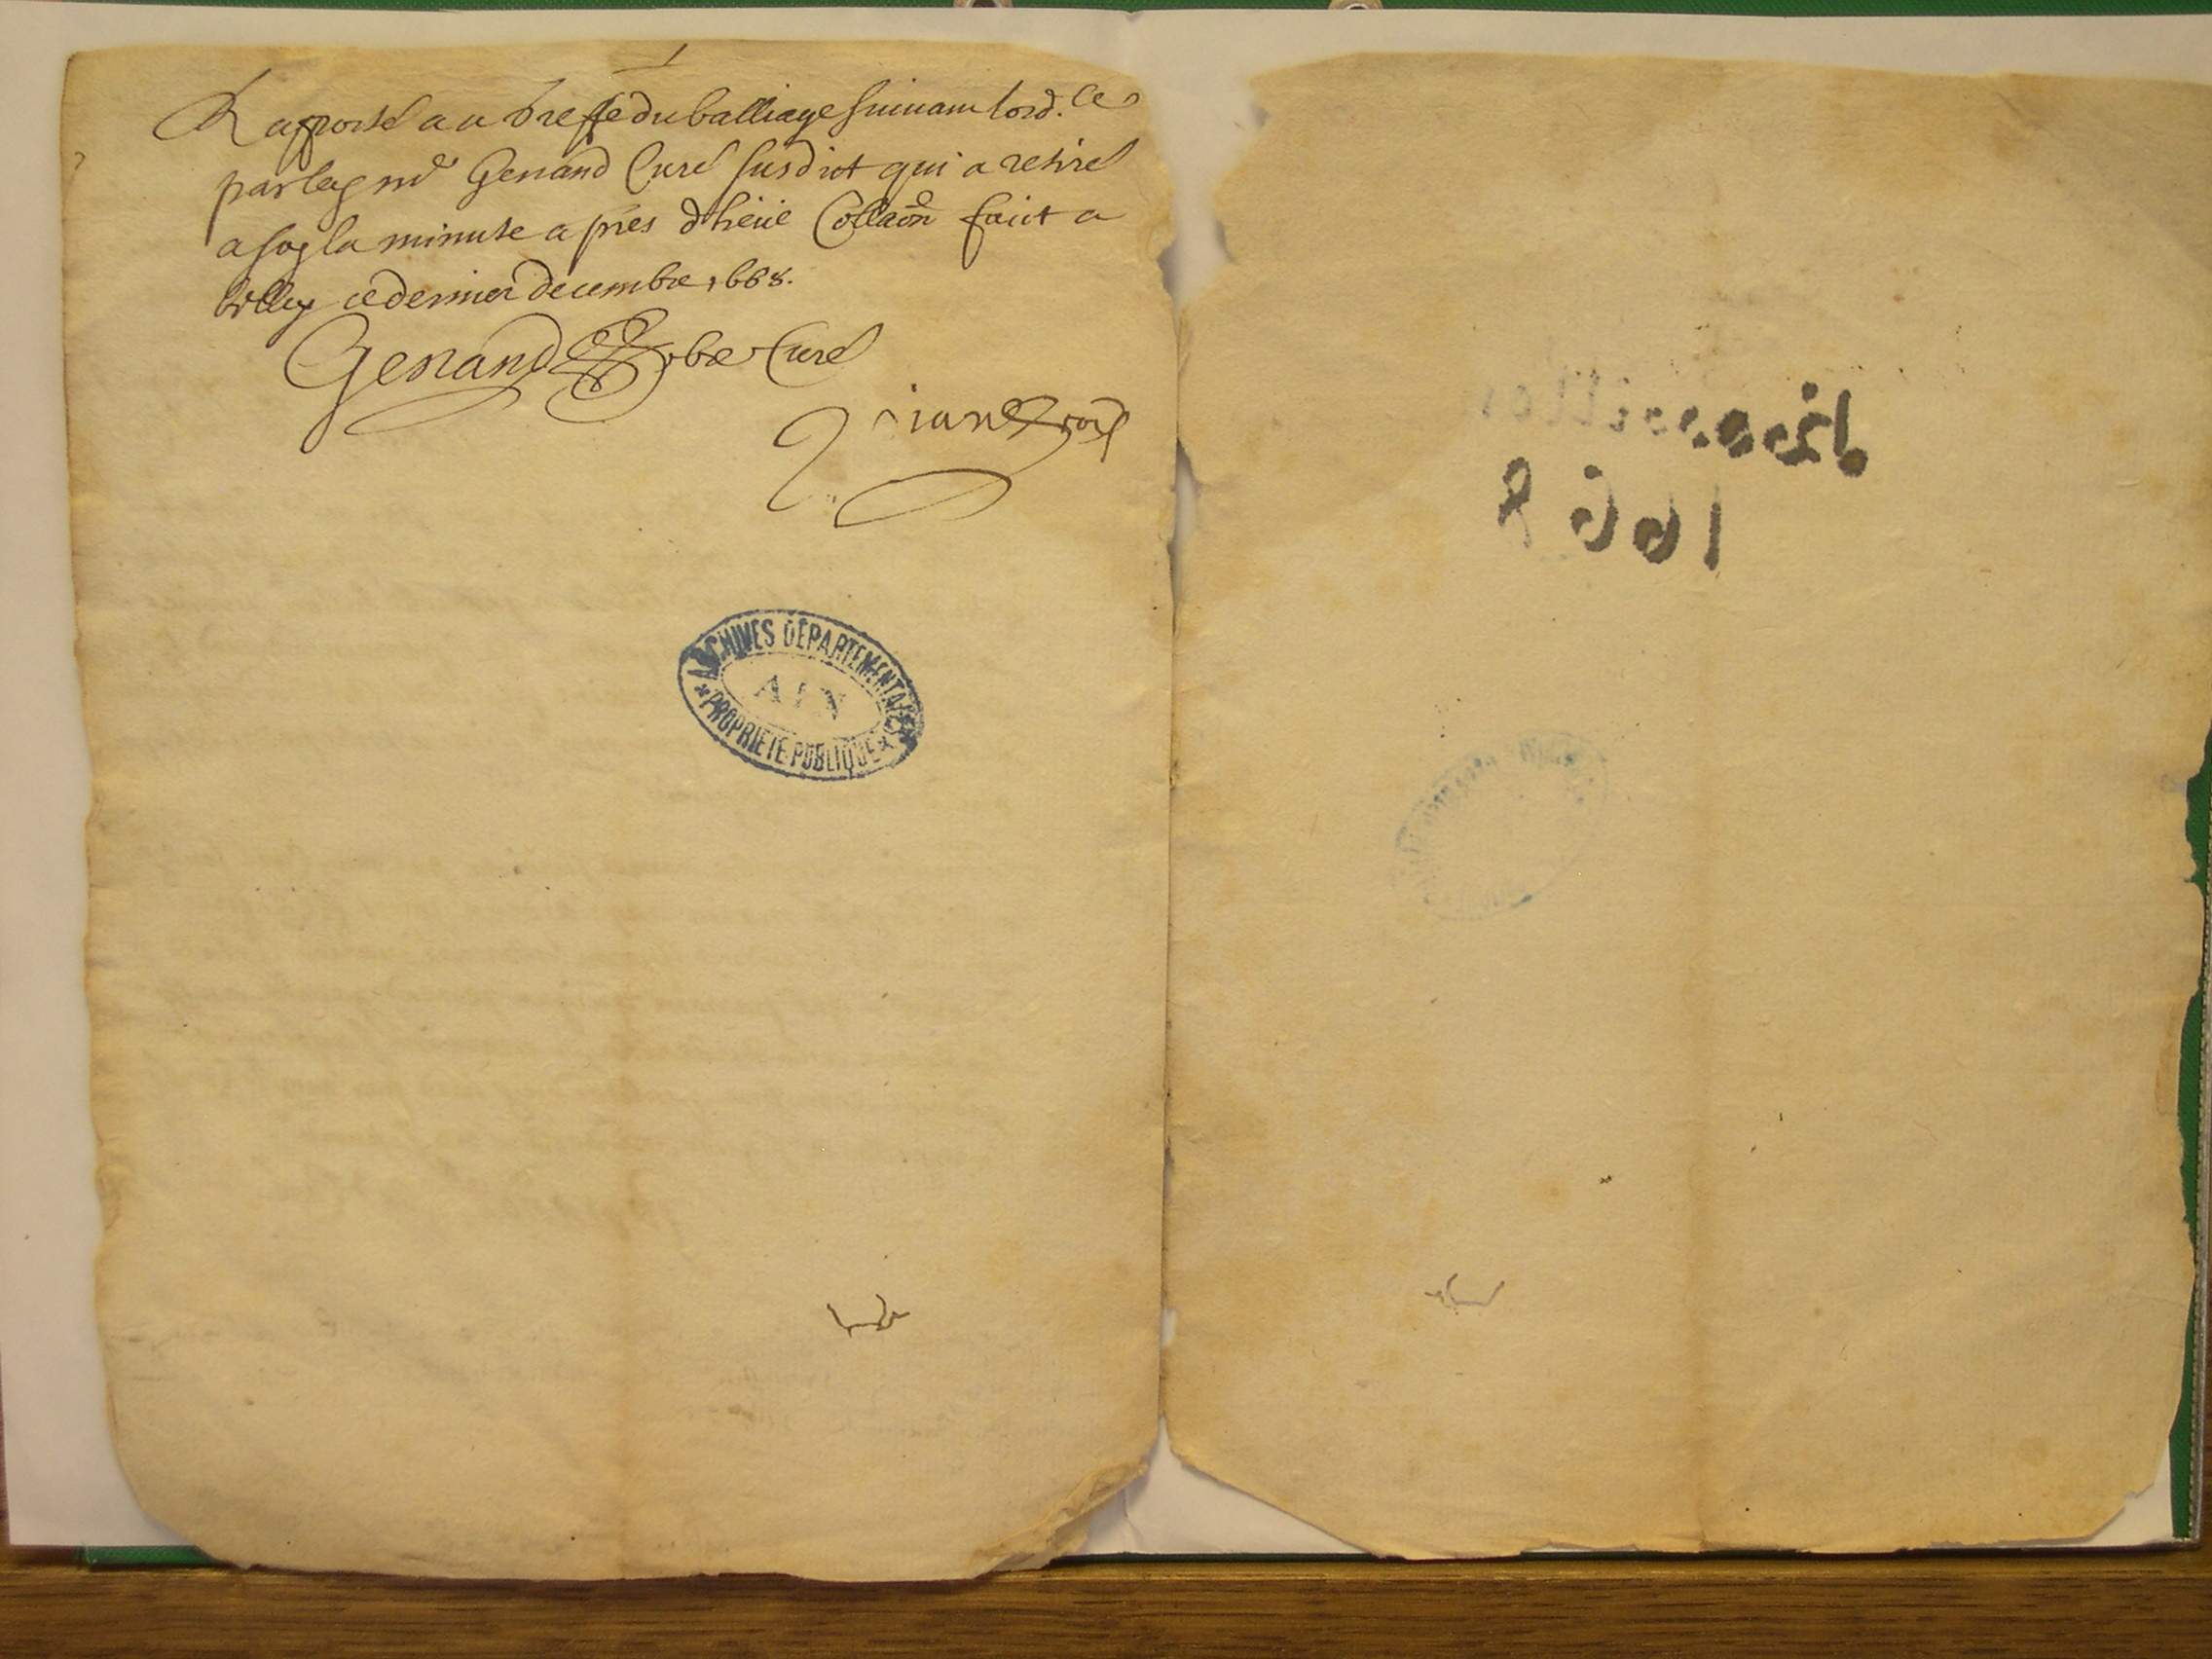 Rapporté au Greffe du balliage suivant lord.ce
par led mre Genand Curé susdict qui a retiré
a soy la minute apres dheüe Collaon faict a
belley ce dernier decembre 1668.
Genand pbre Curé
ARCHIVES DÉPARTEMENTALES
AIN
PROPRIÉTÉ PUBLIQUE
1668